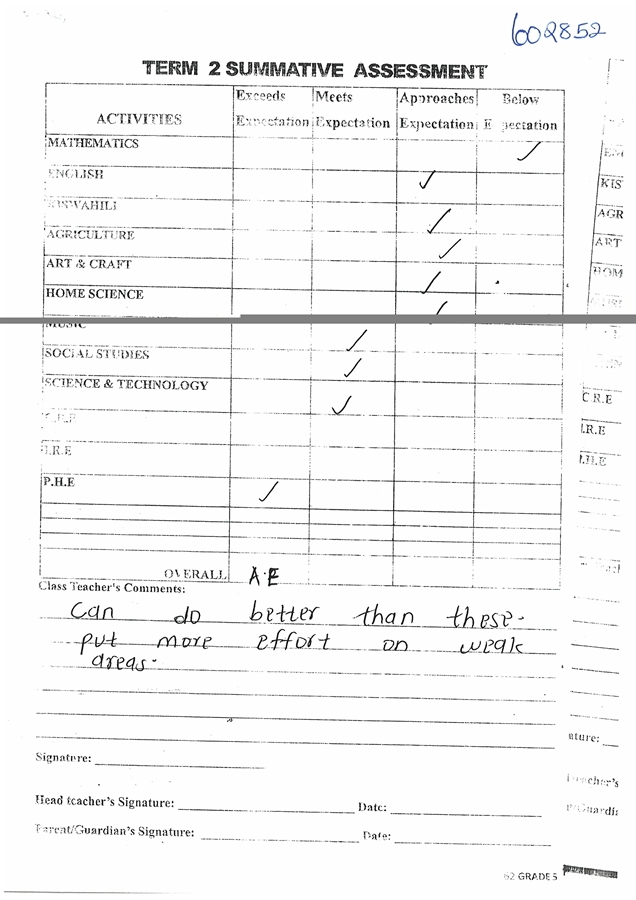 602852
TERM 2 SUMMATIVE ASSESSMENT
ACTIVITIES Exceeds Expectation Meets Expectation Approaches Expectation Below E pectation
MATHEMATICS ✓
ENGLISH ✓
KISWAHILI ✓
AGRICULTURE ✓
ART & CRAFT ✓
HOME SCIENCE ✓
MUSIC ✓
SOCIAL STUDIES ✓
SCIENCE & TECHNOLOGY ✓
C.R.E
I.R.E
P.H.E ✓
OVERALL A.E
Class Teacher's Comments:
Can do better than these.
put more effort on weak
areas.
Signature:
Head teacher's Signature: Date:
Parent/Guardian's Signature: Date:
62 GRADE 5
KIS
AGR
ART
HOM
C.R.E
I.R.E
ature: